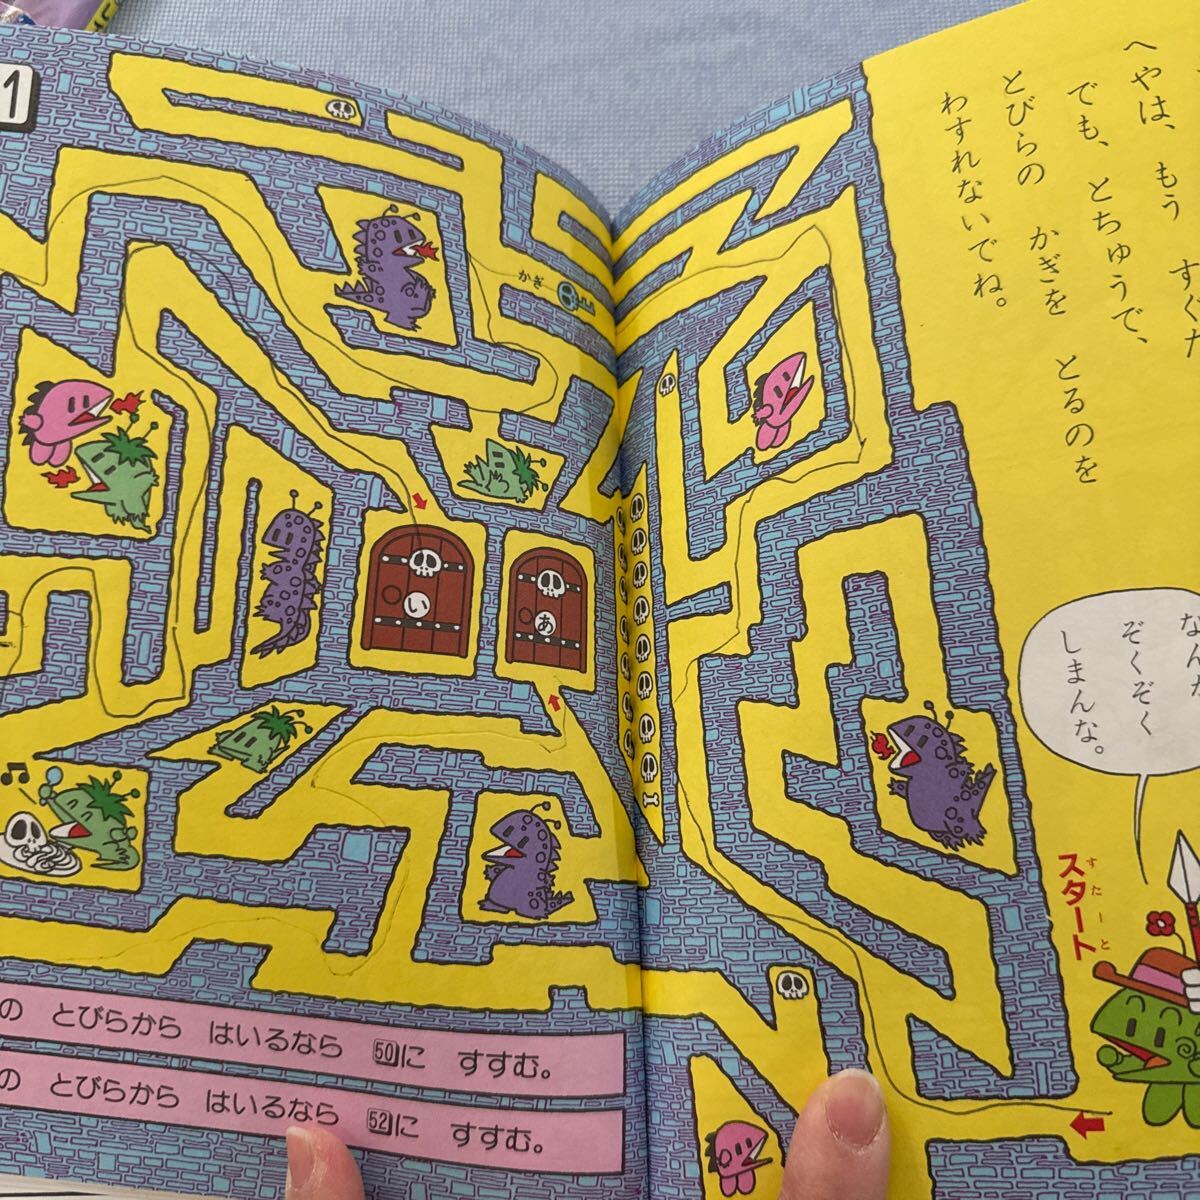 へやは、もう すぐだ
でも、とちゅうで、
とびらの かぎを とるのを
わすれないでね。
ぞくぞく
しまんな。
スタート
すたーと
かぎ
い
あ
1
の とびらから はいるなら 50に すすむ。
の とびらから はいるなら 52に すすむ。